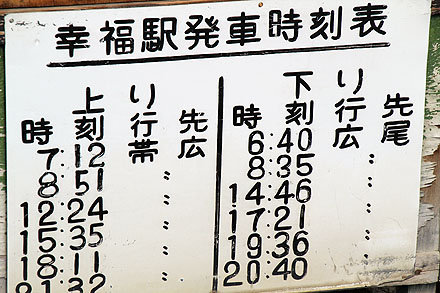 幸福駅発車時刻表
上り
時刻 行先
7:12 帯広
8:51 〃
12:24 〃
15:35 〃
18:11 〃
21:32 〃
下り
時刻 行先
6:40 広尾
8:35 〃
14:46 〃
17:21 〃
19:36 〃
20:40 〃